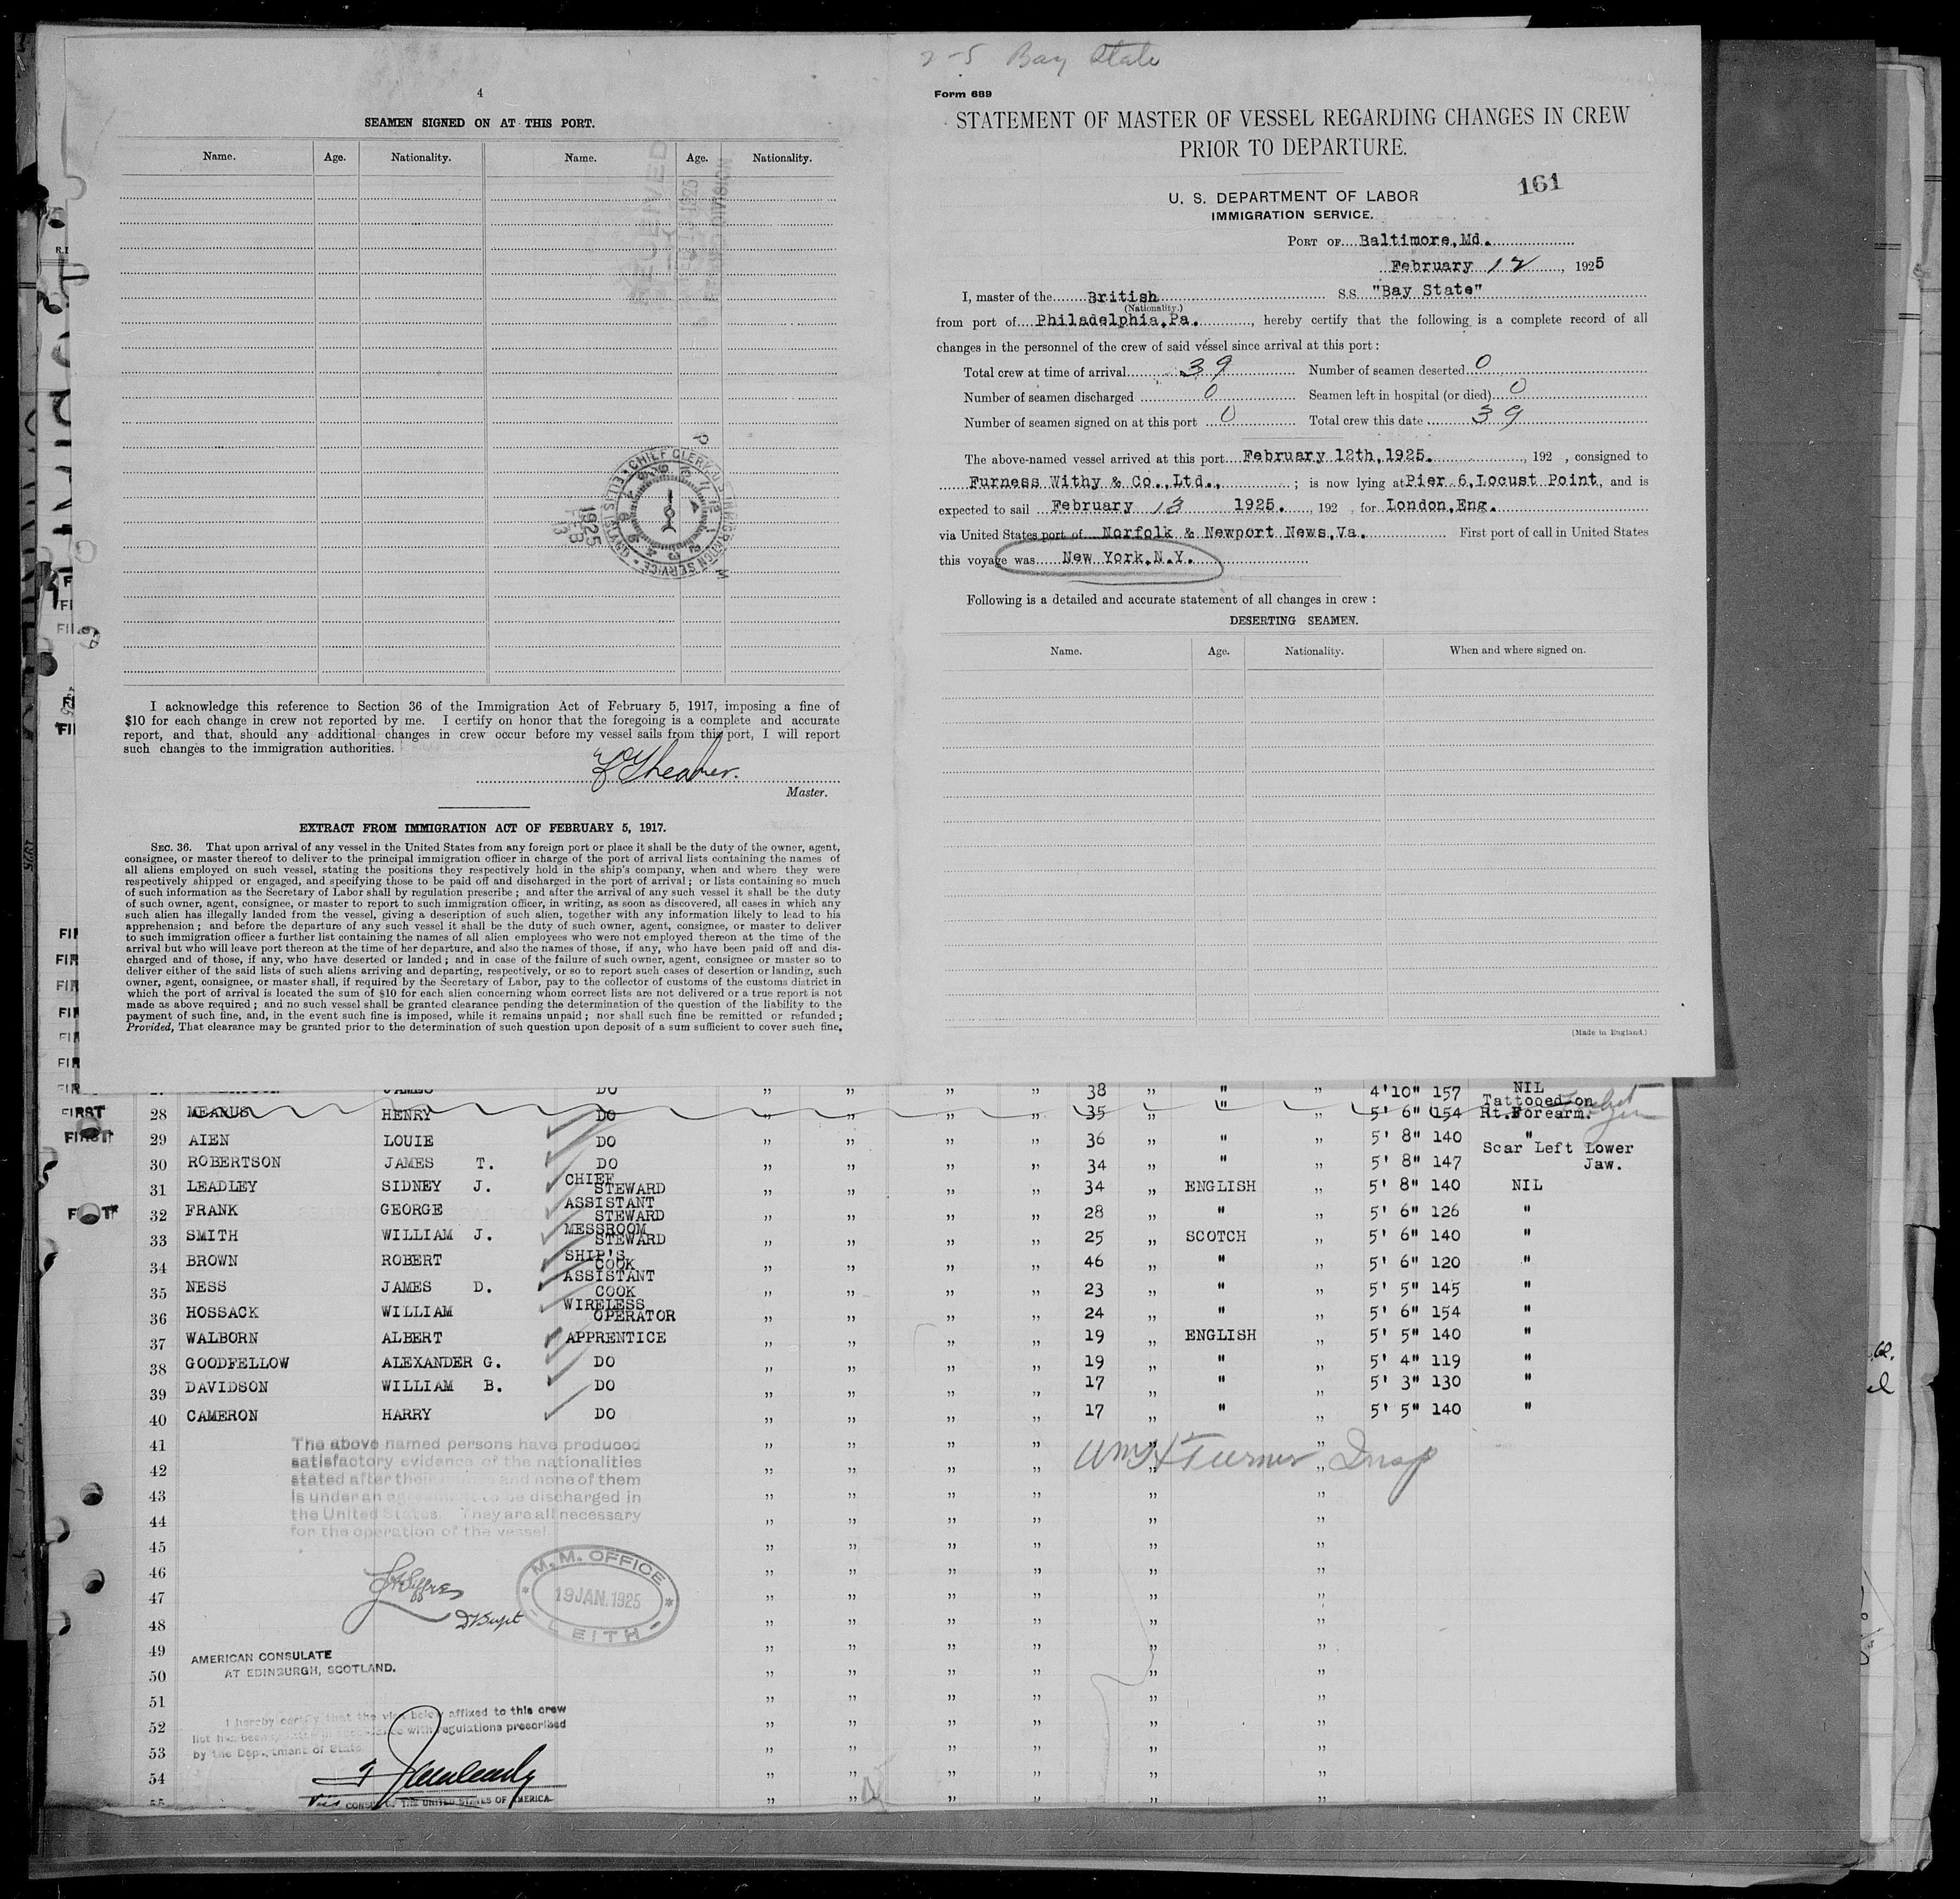 2-5 Bay State
4
SEAMEN SIGNED ON AT THIS PORT.
Name. Age. Nationality. Name. Age. Nationality.
RECEIVED
1925
DIVISION
CHIEF CLERK U.S. IMMIGRATION SERVICE ELLIS ISLAND
1925
FEB
13
I acknowledge this reference to Section 36 of the Immigration Act of February 5, 1917, imposing a fine of
$10 for each change in crew not reported by me. I certify on honor that the foregoing is a complete and accurate
report, and that, should any additional changes in crew occur before my vessel sails from this port, I will report
such changes to the immigration authorities.
Master.
EXTRACT FROM IMMIGRATION ACT OF FEBRUARY 5, 1917.
SEC. 36. That upon arrival of any vessel in the United States from any foreign port or place it shall be the duty of the owner, agent,
consignee, or master thereof to deliver to the principal immigration officer in charge of the port of arrival lists containing the names of
all aliens employed on such vessel, stating the positions they respectively hold in the ship's company, when and where they were
respectively shipped or engaged, and specifying those to be paid off and discharged in the port of arrival; or lists containing so much
of such information as the Secretary of Labor shall by regulation prescribe; and after the arrival of any such vessel it shall be the duty
of such owner, agent, consignee, or master to report to such immigration officer, in writing, as soon as discovered, all cases in which any
such alien has illegally landed from the vessel, giving a description of such alien, together with any information likely to lead to his
apprehension; and before the departure of any such vessel it shall be the duty of such owner, agent, consignee, or master to deliver
to such immigration officer a further list containing the names of all alien employees who were not employed thereon at the time of the
arrival but who will leave port thereon at the time of her departure, and also the names of those, if any, who have been paid off and dis-
charged and of those, if any, who have deserted or landed; and in case of the failure of such owner, agent, consignee or master so to
deliver either of the said lists of such aliens arriving and departing, respectively, or so to report such cases of desertion or landing, such
owner, agent, consignee, or master shall, if required by the Secretary of Labor, pay to the collector of customs of the customs district in
which the port of arrival is located the sum of $10 for each alien concerning whom correct lists are not delivered or a true report is not
made as above required; and no such vessel shall be granted clearance pending the determination of the question of the liability to the
payment of such fine, and, in the event such fine is imposed, while it remains unpaid; nor shall such fine be remitted or refunded;
Provided, That clearance may be granted prior to the determination of such question upon deposit of a sum sufficient to cover such fine.
Form 689
STATEMENT OF MASTER OF VESSEL REGARDING CHANGES IN CREW
PRIOR TO DEPARTURE.
161
U. S. DEPARTMENT OF LABOR
IMMIGRATION SERVICE.
PORT OF Baltimore,Md.
February 12, 1925
I, master of the British S.S. "Bay State"
(Nationality.)
from port of Philadelphia,Pa., hereby certify that the following is a complete record of all
changes in the personnel of the crew of said vessel since arrival at this port:
Total crew at time of arrival 39 Number of seamen deserted 0
Number of seamen discharged 0 Seamen left in hospital (or died) 0
Number of seamen signed on at this port 0 Total crew this date 39
The above-named vessel arrived at this port February 12th,1925. , 192 , consigned to
Furness Withy & Co.,Ltd., ; is now lying at Pier 6,Locust Point, and is
expected to sail February 13 1925. , 192 , for London,Eng.
via United States port of Norfolk & Newport News,Va. First port of call in United States
this voyage was New York,N.Y.
Following is a detailed and accurate statement of all changes in crew:
DESERTING SEAMEN.
Name. Age. Nationality. When and where signed on.
(Made in England.)
JAMES DO " " " " 38 " " " 4'10" 157 NIL
FIRST 28 MEARUS HENRY DO " " " " 35 " " " 5' 6" 154 Tattooed on Rt.Forearm.
FIRST 29 AIEN LOUIE DO " " " " 36 " " " 5' 8" 140 "
30 ROBERTSON JAMES T. DO " " " " 34 " " " 5' 8" 147 Scar Left Lower Jaw.
31 LEADLEY SIDNEY J. CHIEF STEWARD " " " " 34 " ENGLISH " 5' 8" 140 NIL
32 FRANK GEORGE ASSISTANT STEWARD " " " " 28 " " " 5' 6" 126 "
33 SMITH WILLIAM J. MESSROOM STEWARD " " " " 25 " SCOTCH " 5' 6" 140 "
34 BROWN ROBERT SHIP'S COOK " " " " 46 " " " 5' 6" 120 "
35 NESS JAMES D. ASSISTANT COOK " " " " 23 " " " 5' 5" 145 "
36 HOSSACK WILLIAM WIRELESS OPERATOR " " " " 24 " " " 5' 6" 154 "
37 WALBORN ALBERT APPRENTICE " " " " 19 " ENGLISH " 5' 5" 140 "
38 GOODFELLOW ALEXANDER G. DO " " " " 19 " " " 5' 4" 119 "
39 DAVIDSON WILLIAM B. DO " " " " 17 " " " 5' 3" 130 "
40 CAMERON HARRY DO " " " " 17 " " " 5' 5" 140 "
41 The above named persons have produced
Wm H Turner Insp
42 satisfactory evidence of the nationalities
stated after their names and none of them
43 is under an agreement to be discharged in
44 the United States. They are all necessary
for the operation of the vessel.
45
46
47
48
M. M. OFFICE
19 JAN. 1925
LEITH
49 AMERICAN CONSULATE
50 AT EDINBURGH, SCOTLAND.
51
52 I hereby certify that the visa below affixed to this crew
list has been in accordance with regulations prescribed
53 by the Department of State
54
55 Vice CONSUL OF THE UNITED STATES OF AMERICA